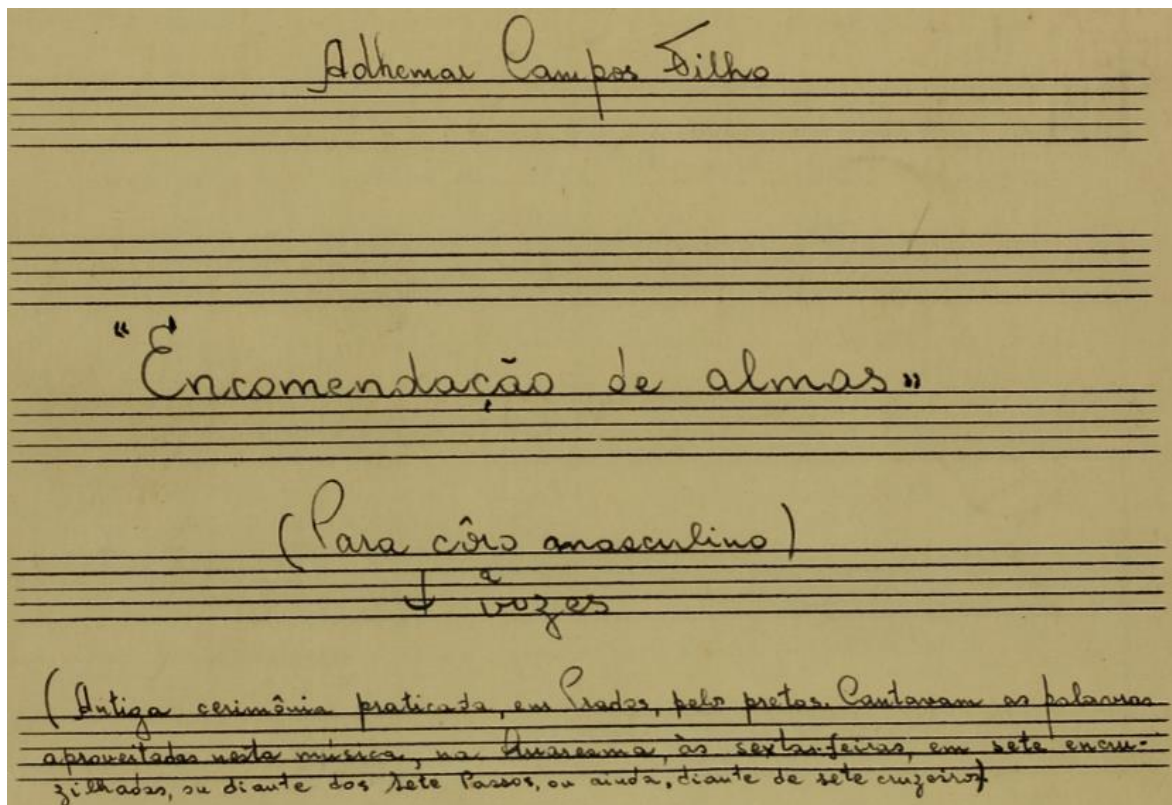 Adhemar Campos Filho
"Encomendação de almas"
(Para côro masculino)
a
vozes
(Antiga cerimônia praticada, em Prados, pelos pretos. Cantavam as palavras
aproveitadas nesta música, na Quaresma, às sextas-feiras, em sete encru-
zilhadas, ou diante dos sete Passos, ou ainda, diante de sete cruzeiros)